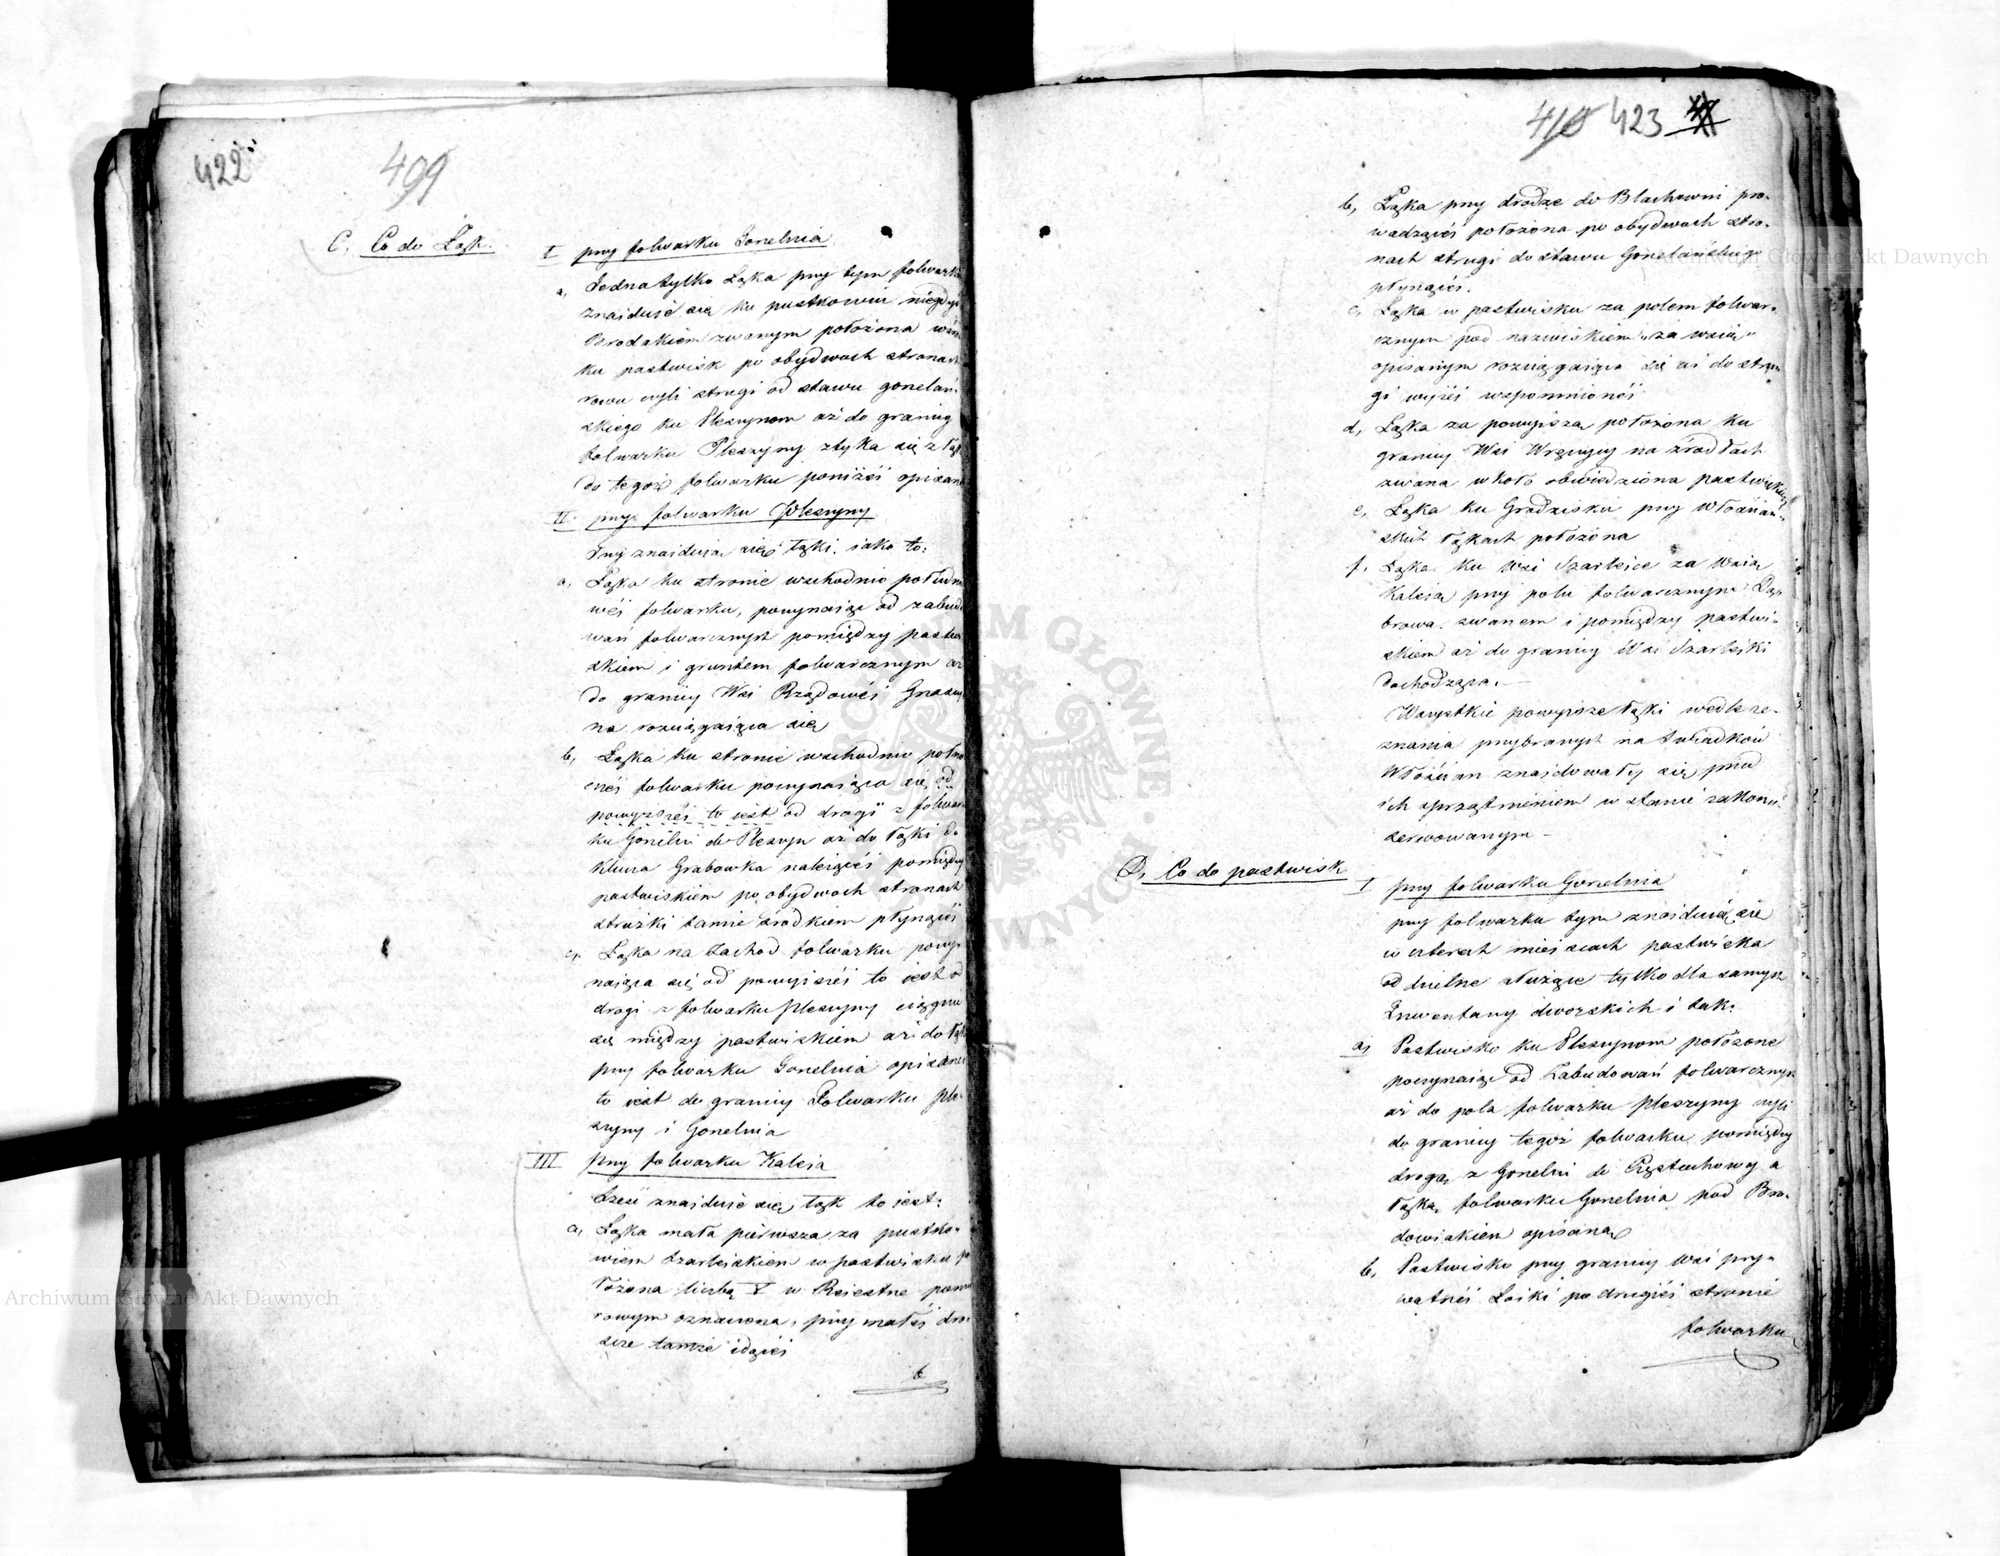 422
409
C. Co do Łąk.
I przy folwarku Gonelnia
a, Jedna tylko Łąka przy tym folwarku
znaiduie się ku pustkowiu niegdyś
Brodakiem zwanym położona
ku pastwisk po obydwoch stronach
rowu czyli strugi od stawu gonelań-
skiego ku Pleszynom aż do granicy
folwarku Pleszyny styka się z łąk
do tegoż folwarku poniżéi opisan
II. przy folwarku Pleszyny
Trzy znaiduią się łąki, iako to:
a, Łąka ku stronie wschodnio połud
wéi folwarku, poczynaiąc od zabudo
wań folwarcznych pomiędzy pastwi
skiem i gruntem folwarcznym aż
do granicy Wsi Rządowéi Gnaszy
na rozciągaiąca się
b, Łąka ku stronie wschodnio półno
cnéi folwarku poczynaiąca się od
powyższéi to iest od drogi z folwar
ku Gonelni do Pleszyn aż do łąki do
Klucza Grabowka należącéi pomiędzy
pastwiskiem po obydwoch stronach
strużki tamże środkiem płynącéi
c, Łąka na zachod folwarku poczy-
naiąca się od powyższéi to iest od
drogi z folwarku Pleszyny ciągnie
się między pastwiskiem aż do łąk
przy folwarku Gonelnia opisanéi
to iest do granicy Folwarku Ple-
szyny i Gonelnia
III przy folwarku Kaleia
Sześć znaiduie się łąk to iest:
a, Łąka mała pierwsza za pustko-
wiem Szarleiskiem w pastwisku po
łożona liczbą V w Reiestrze pomia
rowym oznaczona, przy małéi dro-
dze tamże idącéi
b
410 423
b, Łąka przy drodze do Blachowni pro-
wadzącéi położona po obydwoch stro-
nach strugi do stawu Gonelańskiego
płynącéi.
c, Łąka w pastwisku za polem folwar-
cznym pod nazwiskiem „za wsią"
opisanym rozciągaiąca się aż do stru-
gi wyżéi wspomnionéi
d, Łąka za powyższą położona ku
granicy Wsi Wręczycy na źrodłach
zwana wkoło obwiedziona pastwiskiem
e, Łąka ku Grodzisku przy Włościań-
skich łąkach położona
f, Łąka ku Wsi Szarleice za Wsią
Kaleią przy polu folwarcznym Dą-
browa zwanem i pomiędzy pastwi-
skiem aż do granicy Wsi Szarleiki
dochodząca.—
Wszystkie powyższe łąki wedle ze-
znania przybranych na Swiadkow
Włościan znaidowały się przed
ich sprzątnieniem w stanie zakon-
serwowanym —
D, Co do pastwisk
I przy folwarku Gonelnia
przy folwarku tym znaiduią się
w czterech mieiscach pastwiska
oddzielne służące tylko dla samych
Inwentarzy dworskich i tak:
a, Pastwisko ku Pleszynom położone
poczynaiąc od Zabudowań folwarcznych
aż do pola folwarku Pleszyny czyli
do granicy tegoż folwarku, pomiędzy
drogą z Gonelni do Częstochowy a
łąką folwarku Gonelnia pod Bro-
dowiakiem opisaną
b, Pastwisko przy granicy wsi pry-
watnéi Łoiki po drugiéi stronie
folwarku